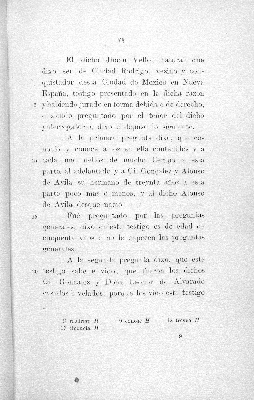 El dicho Juan
dixo ser de Ciudad Rodrigo, vezino y con-
quistador desta Ciudad de Mexico en Nueva
España, testigo presentado en la dicha razon
y abiendo jurado en forma debida e de derecho,
e siendo preguntado por el tenor del dicho
ynterrogatorio, dixo e depuso lo siguiente.
A la primera pregunta dixo que co-
noçio y conoce a los en ella contenidos y a
cada uno dellos de mucho tiempo a esta
parte, al adelantado y a Gil Gonçalez y Alonso
de Avila su hermano de treynta años a esta
parte poco mas o menos, y al dicho Alonso
de Avila desque naçio
Fué preguntado por las preguntas
generales, dixo queste testigo es de edad de
cinquenta años e no le enpecen las preguntas
generales.
A la segunda pregunta dixo, que este
testigo sabe e vido, que fueron los dichos
Gil Gonçalez y Doña Leonor de Alvarado
casados e velados, porque los vido este testigo